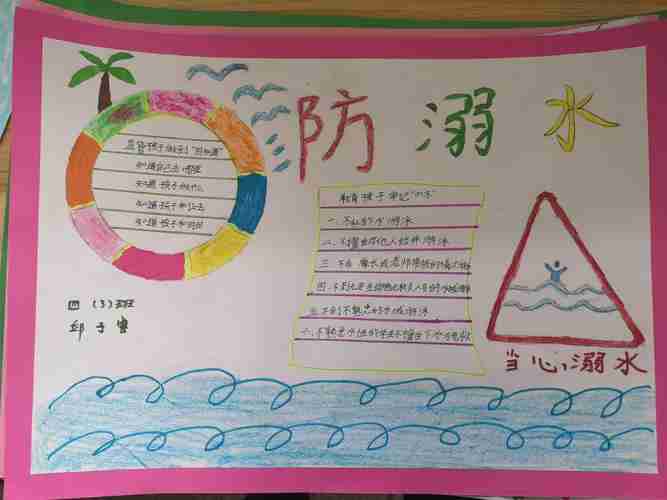 防溺水
监管孩子做到"四知道"
知道自己去哪里
知道孩子做什么
知道孩子和
知道孩子何时回
教育孩子牢记"六不"
一.不私自下水游泳
二.不擅自与他人结伴游泳
三.不在 家长或老师带领的情况
四.不到
五.不到不熟悉的水域游泳
六.不熟悉水性的学生不擅自下水施救
当心溺水
四(3)班
邱子